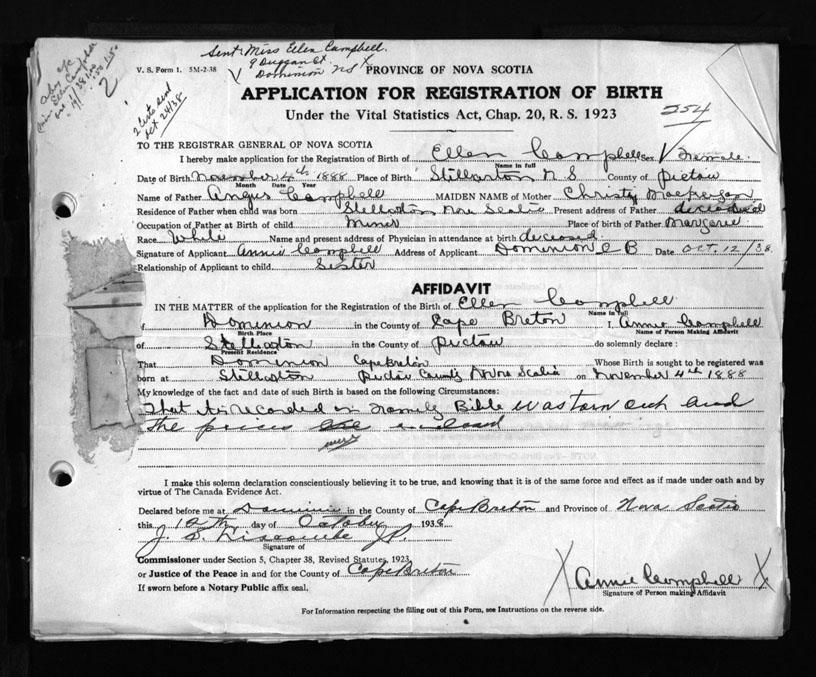 Sent: Miss Ellen Campbell.
9 Duggan St.
V. S. Form 1. 5M-2-38 Dominion NS PROVINCE OF NOVA SCOTIA
APPLICATION FOR REGISTRATION OF BIRTH
Under the Vital Statistics Act, Chap. 20, R. S. 1923
254
2
Oct 24/38
TO THE REGISTRAR GENERAL OF NOVA SCOTIA
I hereby make application for the Registration of Birth of Ellen Campbell Sex Female
Name in full
Date of Birth November 4th 1888 Place of Birth Stellarton N S County of Pictou
Month Date Year
Name of Father Angus Campbell MAIDEN NAME of Mother Christy
Residence of Father when child was born Stellarton Nova Scotia Present address of Father deceased
Occupation of Father at Birth of child Miner Place of birth of Father Margaree
Race White Name and present address of Physician in attendance at birth deceased
Signature of Applicant Annie Campbell Address of Applicant Dominion C B Date Oct. 12/38
Relationship of Applicant to child Sister
AFFIDAVIT
IN THE MATTER of the application for the Registration of the Birth of Ellen Campbell
Name in full
of Dominion in the County of Cape Breton I, Annie Campbell
Birth Place Name of Person Making Affidavit
of Stellarton in the County of Pictou do solemnly declare:
Present Residence
That Dominion Cape Breton Whose Birth is sought to be registered was
born at Stellarton Pictou County Nova Scotia on November 4th 1888
My knowledge of the fact and date of such Birth is based on the following Circumstances:
That As recorded in Family Bible was torn out and
the enclosed
I make this solemn declaration conscientiously believing it to be true, and knowing that it is of the same force and effect as if made under oath and by
virtue of The Canada Evidence Act.
Declared before me at Dominion in the County of Cape Breton and Province of Nova Scotia
this 12th day of October 1938
J. S. Liscombe J.P.
Signature of
Commissioner under Section 5, Chapter 38, Revised Statutes, 1923,
or Justice of the Peace in and for the County of Cape Breton
If sworn before a Notary Public affix seal.
X Annie Campbell X
Signature of Person making Affidavit
For Information respecting the filling out of this Form, see Instructions on the reverse side.